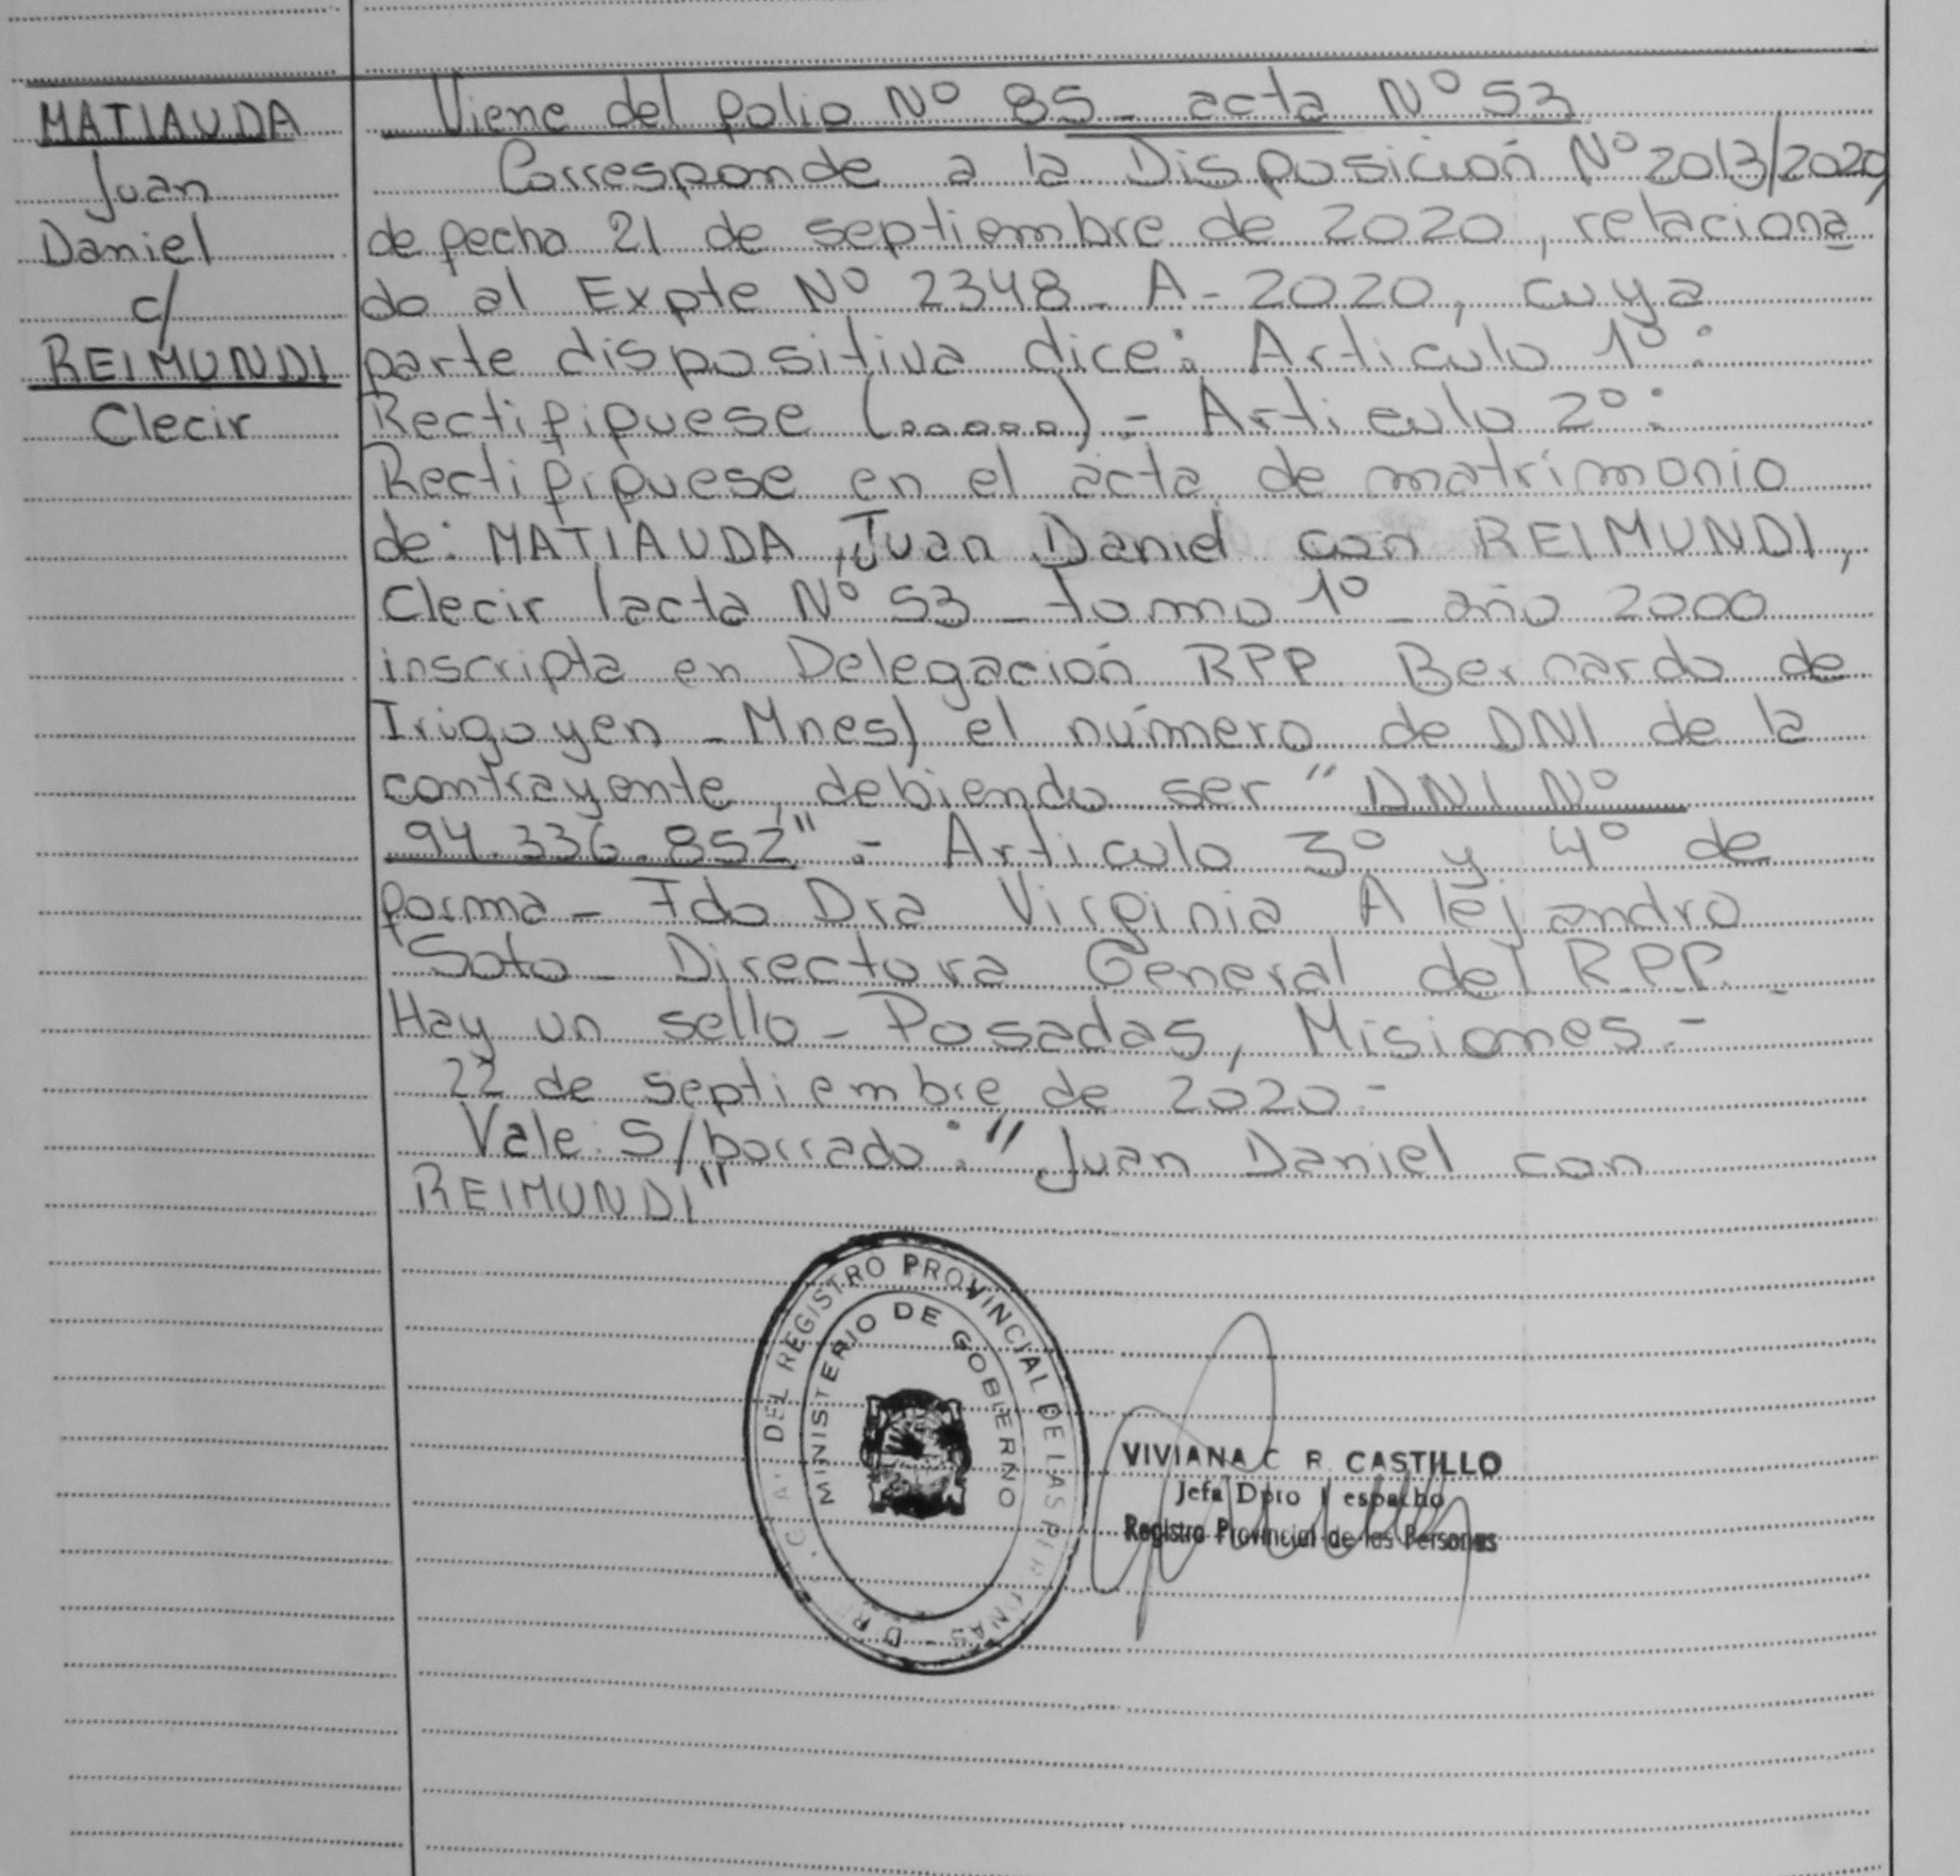 MATIAUDA
Juan
Daniel
c/
REIMUNDI
Clecir
Viene del folio Nº 85 - acta Nº 53
Corresponde a la Disposición Nº 2013/2020
de fecha 21 de septiembre de 2020, relaciona
do al Expte Nº 2348 - A - 2020, cuya
parte dispositiva dice: Articulo 1º:
Rectifiquese (.....) - Articulo 2º:
Rectifiquese en el acta de matrimonio
de: MATIAUDA, Juan Daniel con REIMUNDI,
Clecir (acta Nº 53 - tomo 1º - año 2000
inscripta en Delegación RPP Bernardo de
Irigoyen - Mnes) el número de DNI de la
contrayente, debiendo ser "DNI Nº
94.336.852" .- Articulo 3º y 4º de
forma - Fdo Dra Virginia Alejandra
Soto - Directora General del R.P.P. -
Hay un sello - Posadas, Misiones.-
22 de septiembre de 2020.-
Vale: S/borrado: "Juan Daniel con
REIMUNDI"
DEL REGISTRO PROVINCIAL DE LAS PERSONAS
MINISTERIO DE GOBIERNO
VIVIANA C R. CASTILLO
Jefa Dpto Despacho
Registro Provincial de las Personas